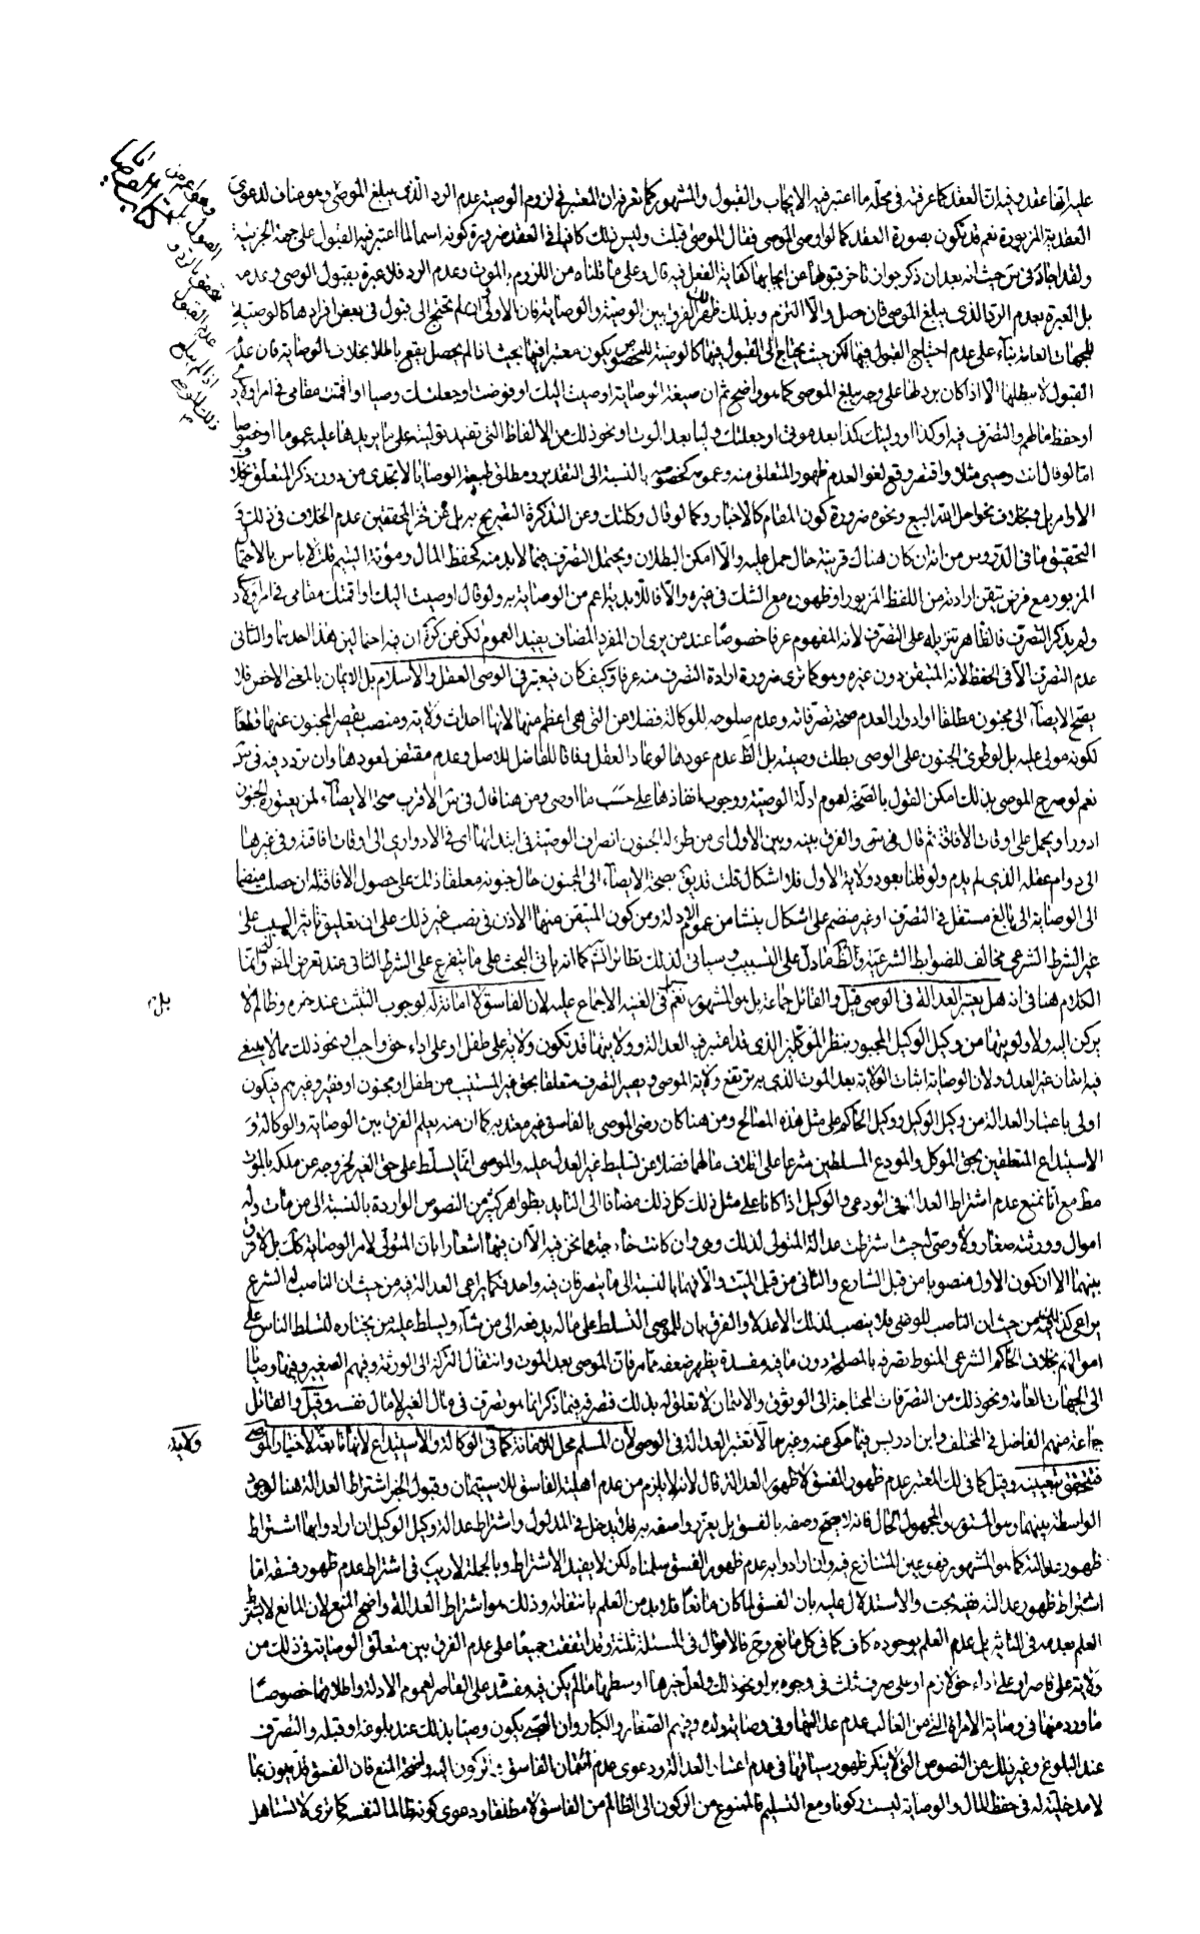 عليه انها عقد وفيه ان العقد كما عرفته في محله ما اعتبر فيه الايجاب والقبول والمشهور كما تعرفه ان المعتبر في لزوم الوصية عدم الرد الذي يبلغ الموصى وهو مناف لدعوى
العقدية المزبورة نعم قد تكون بصورة العقد كما لو اوصى الموصى فقال الموصى قبلت وليس ذلك كافيا في العقد ضرورة كونه اسما لما اعتبر فيه القبول على جهة الجزئية
ولقد اجاد في حيث انه بعد ان ذكر جواز تاخر قبولها عن ايجابها كفاية الفعل فيه قال وعلى ما قلناه من اللزوم بالموت وعدم الرد فلا عبرة بقبول الوصى وعدمه
بل العبرة بعدم الرد الذي يبلغ الموصى فان حصل والا التزم وبذلك ظهر الفرق بين الوصية والوصاية فان الاولى ان لم تحتج الى قبول في بعض افرادها كالوصية
للجهات العامة بناء على عدم احتياج القبول فيها لكن حيث يحتاج الى القبول فيها كالوصية للمخصوص يكون معتبرا فيها بحيث انه لم يحصل يقع باطلا بخلاف الوصاية فان عدم
القبول لا يبطلها الا اذا كان بردها على وجه يبلغ الموصى كما هو واضح ثم ان صيغة الوصاية اوصيت اليك او فوضت او جعلتك وصيا او اقمتك مقامي في امر اولادي
او حفظ مالهم والتصرف فيه او كذا او وليتك كذا بعد موتي او جعلتك وليا بعد الموت او نحو ذلك من الالفاظ التي تفيد توليته على ما يريدها عليه عموما او خصوصا
اما لو قال انت وصيي مثلا واقتصر وقع لغوا لعدم ظهور المتعلق منه وعمومه كخصوصه بالنسبة الى التقدير ومطلق طبيعة الوصايا لا يجدي من دون ذكر المتعلق بخلاف
الاوامر بل وبخلاف نحو احل الله البيع ونحوه ضرورة كون المقام كالاخبار وكما لو قال وكلتك وعن التذكرة التصريح به بل عن فخر المحققين عدم الخلاف في ذلك وفي
التحقيق ما في الدروس من انه ان كان هناك قرينة حال حمل عليه والا امكن البطلان ويحتمل التصرف فيما لا بد منه كحفظ المال ومؤنة اليتيم قلت لا باس بالاحتمال
المزبور مع فرض تيقن ارادته من اللفظ المزبور او ظهوره مع الشك في غيره والا فاللابدية اعم من الوصاية به ولو قال اوصيت اليك او اقمتك مقامي في امر اولادي
ولم يذكر التصرف فالظاهر تنزيله على التصرف لانه المفهوم عرفا خصوصا عند من يرى ان المفرد المضاف يفيد العموم لكن عن كرة ان فيه احتمالين هذا احدهما والثاني
عدم التصرف الا في الحفظ لانه المتيقن دون غيره وهو كما ترى ضرورة ارادة التصرف منه عرفا وكيف كان فيعتبر في الوصى العقل والاسلام بل الايمان بالمعنى الاخص فلا
يصح الايصاء الى مجنون مطلقا او ادوارا لعدم صحة تصرفاته وعدم صلوحه للوكالة فضلا عن التي هي اعظم منها لانها احداث ولاية ومنصب يقصر المجنون عنهما قطعا
لكونه مولى عليه بل لو طرئ الجنون على الوصى بطلت وصيته بل الظ عدم عودها لو عاد العقل وفاقا للفاضل للاصل وعدم مقتض لعودها وان تردد فيه في س
نعم لو صرح الموصى بذلك امكن القول بالصحة لعموم ادلة الوصية ووجوب انفاذها على حسب ما اوصى ومن هنا قال في س الاقرب صحة الايصاء لمن يعتوره الجنون
ادوارا ويحمل على اوقات الافاقة ثم قال في س والفرق بينه وبين الاول اى من طرء له الجنون انصراف الوصية في ابتدائها اى في الادواري الى اوقات افاقته وفي غيرها
الى دوام عقله الذي لم يدم ولو قلنا بعود ولاية الاول فلا اشكال قلت قد يق بصحة الايصاء الى المجنون حال جنونه معلقا ذلك على حصول الافاقة له ان حصلت منضما
الى الوصاية الى بالغ مستقل في التصرف او غير منضم على اشكال ينشا من عموم الادلة ومن كون المتيقن منها الاذن في نصب غير ذلك على ان تعليق تاثير السبب على
غير الشرط الشرعي مخالف للضوابط الشرعية والظ ما دل على التسبيب وسياتي لذلك نظائر انش كما انه ياتي البحث على ما يتفرع على الشرط الثاني عند تعرض المص وانما
الكلام هنا في انه هل يعتبر العدالة في الوصى قيل والقائل جماعة بل هو المشهور نعم بل في الغنية الاجماع عليه لان الفاسق لا امانة له لوجوب التثبت عند خبره وظالم لا
يركن اليه ولاولويتها من وكيل الوكيل المجبور بنظر الموكلين الذي قد اعتبر فيه العدالة وولايتها قد تكون ولاية على طفل او على اداء حق واجب او نحو ذلك مما لا ينبغي
فيه ائتمان غير العدل ولان الوصاية اثبات الولاية بعد الموت الذي به ترتفع ولاية الموصى ويصير التصرف متعلقا بحق غير المستنيب من طفل او مجنون او فقير وغيرهم فيكون
اولى باعتبار العدالة من وكيل الوكيل ووكيل الحاكم على مثل هذه المصالح ومن هنا كان رضى الموصى بالفاسق غير معتد به كما ان منه يعلم الفرق بين الوصاية والوكالة و
الاستيداع المتعلقين بحق الموكل والمودع المسلطين شرعا على اتلاف مالهما فضلا عن تسليط غير العدل عليه والموصى انما يسلط على حق الغير لخروجه عن ملكه بالموت
مط مع انا نمنع عدم اشتراط العدالة في الودعي والوكيل اذا كانا على مثل ذلك كل ذلك مضافا الى التاييد بظواهر كثير من النصوص الواردة بالنسبة الى من مات وله
اموال وورثته صغار ولا وصى له حيث اشترطت عدالة المتولى لذلك وهي وان كانت خارجة عما نحن فيه الا ان فيها اشعارا بان المتولى لامر الوصاية كك بل لا فرق
بينهما الا ان كون الاول منصوبا من قبل الشارع والثاني من قبل الميت والا فهما بالنسبة الى ما يتصرفان فيه واحد فكما يراعى العدالة فيه من حيث ان الناصب له الشرع
يراعى كذا فيمن حيث ان الناصب للوصى فلا ينصب لذلك الا عدلا والفرق بان للموصى التسلط على ماله يدفعه الى من شاء ويسلط عليه من يختاره لتسلط الناس على
اموالهم بخلاف الحاكم الشرعي المنوط تصرفه بالمصلحة دون ما فيه مفسدة يظهر ضعفه مما مر فان الموصى بعد الموت وانتقال التركة الى الورثة وفيهم الصغير وفيها وصايا
الى الجهات العامة ونحو ذلك من التصرفات المحتاجة الى الوثوق والايتمان لا تعلق له بذلك فتصرفه فيما ذكر انما هو تصرف في مال الغير لا مال نفسه وقيل والقائل
جماعة منهم الفاضل في المختلف وابن ادريس فيما حكى عنه وغيرهما لا تعتبر العدالة في الوصى لان المسلم محل للامانة كما في الوكالة والاستيداع ولانها ولاية تابعة لاختيار الموصى
فتتحقق بتعيينه وقيل كما في لك المعتبر عدم ظهور الفسق لا ظهور العدالة قال لانه لا يلزم من عدم اهلية الفاسق للاستيمان وقبول الخبر اشتراط العدالة هنا لوجود
الواسطة بينهما وهو المستور والمجهول الحال فانه لا يصح وصفه بالفسق بل يعزر واصفه به فلا يدخل في المدلول واشتراط عدالة وكيل الوكيل ان ارادوا بها اشتراط
ظهور عدالته كما هو المشهور فهو عين المتنازع فيه وان ارادوا به عدم ظهور الفسق سلمناه لكن لا يفيد الاشتراط وبالجملة لا ريب في اشتراط عدم ظهور فسقه اما
اشتراط ظهور عدالته ففيه بحث والاستدلال عليه بان الفسق لما كان مانعا فلا بد من العلم بانتفائه وذلك هو اشتراط العدالة واضح المنع لان المانع لا يشترط
العلم بعدمه في التاثير بل عدم العلم بوجوده كاف كما في كل مانع وح فالاقوال في المسئلة ثلثة وقد اتفقت جميعا على عدم الفرق بين متعلق الوصاية في ذلك من
ولاية على قاصر او على اداء حق لازم او على صرف ثلث في وجوه بر او نحو ذلك ولعل اخيرها اوسطها ما لم يكن فيه مفسدة على القاصر لعموم الادلة واطلاقها خصوصا
ما ورد منها في وصاية الامرأة التي من الغالب عدم عدالتها وفي وصاية ولده وفيهم الصغار والكبار وان الصبي يكون وصيا بذلك عند بلوغه او قبله والتصرف
عند البلوغ وغير ذلك من النصوص التي لا ينكر ظهور سياقها في عدم اعتبار العدالة ودعوى عدم ائتمان الفاسق و تركون اليه واضحة المنع فان الفسق قد يكون بما
لا مدخلية له في حفظ المال والوصاية ليست ركونا ومع التسليم فالممنوع من الركون الى الظالم من الفاسق لا مطلقا ودعوى كونه ظالما لنفسه كما ترى لا تستاهل
كتاب الوصايا
بل
ولاية